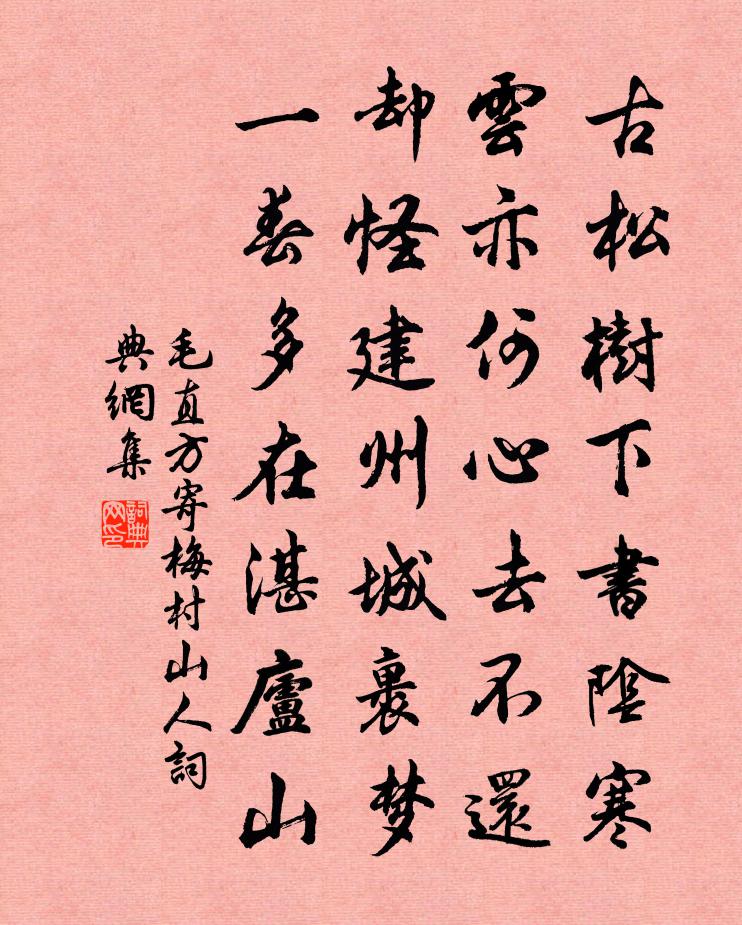 古松樹下書陰寒
雲亦何心去不還
却怪建州城裏梦
一春多在湛廬山
毛直方寄梅村山人詞
典網集
詞典网印